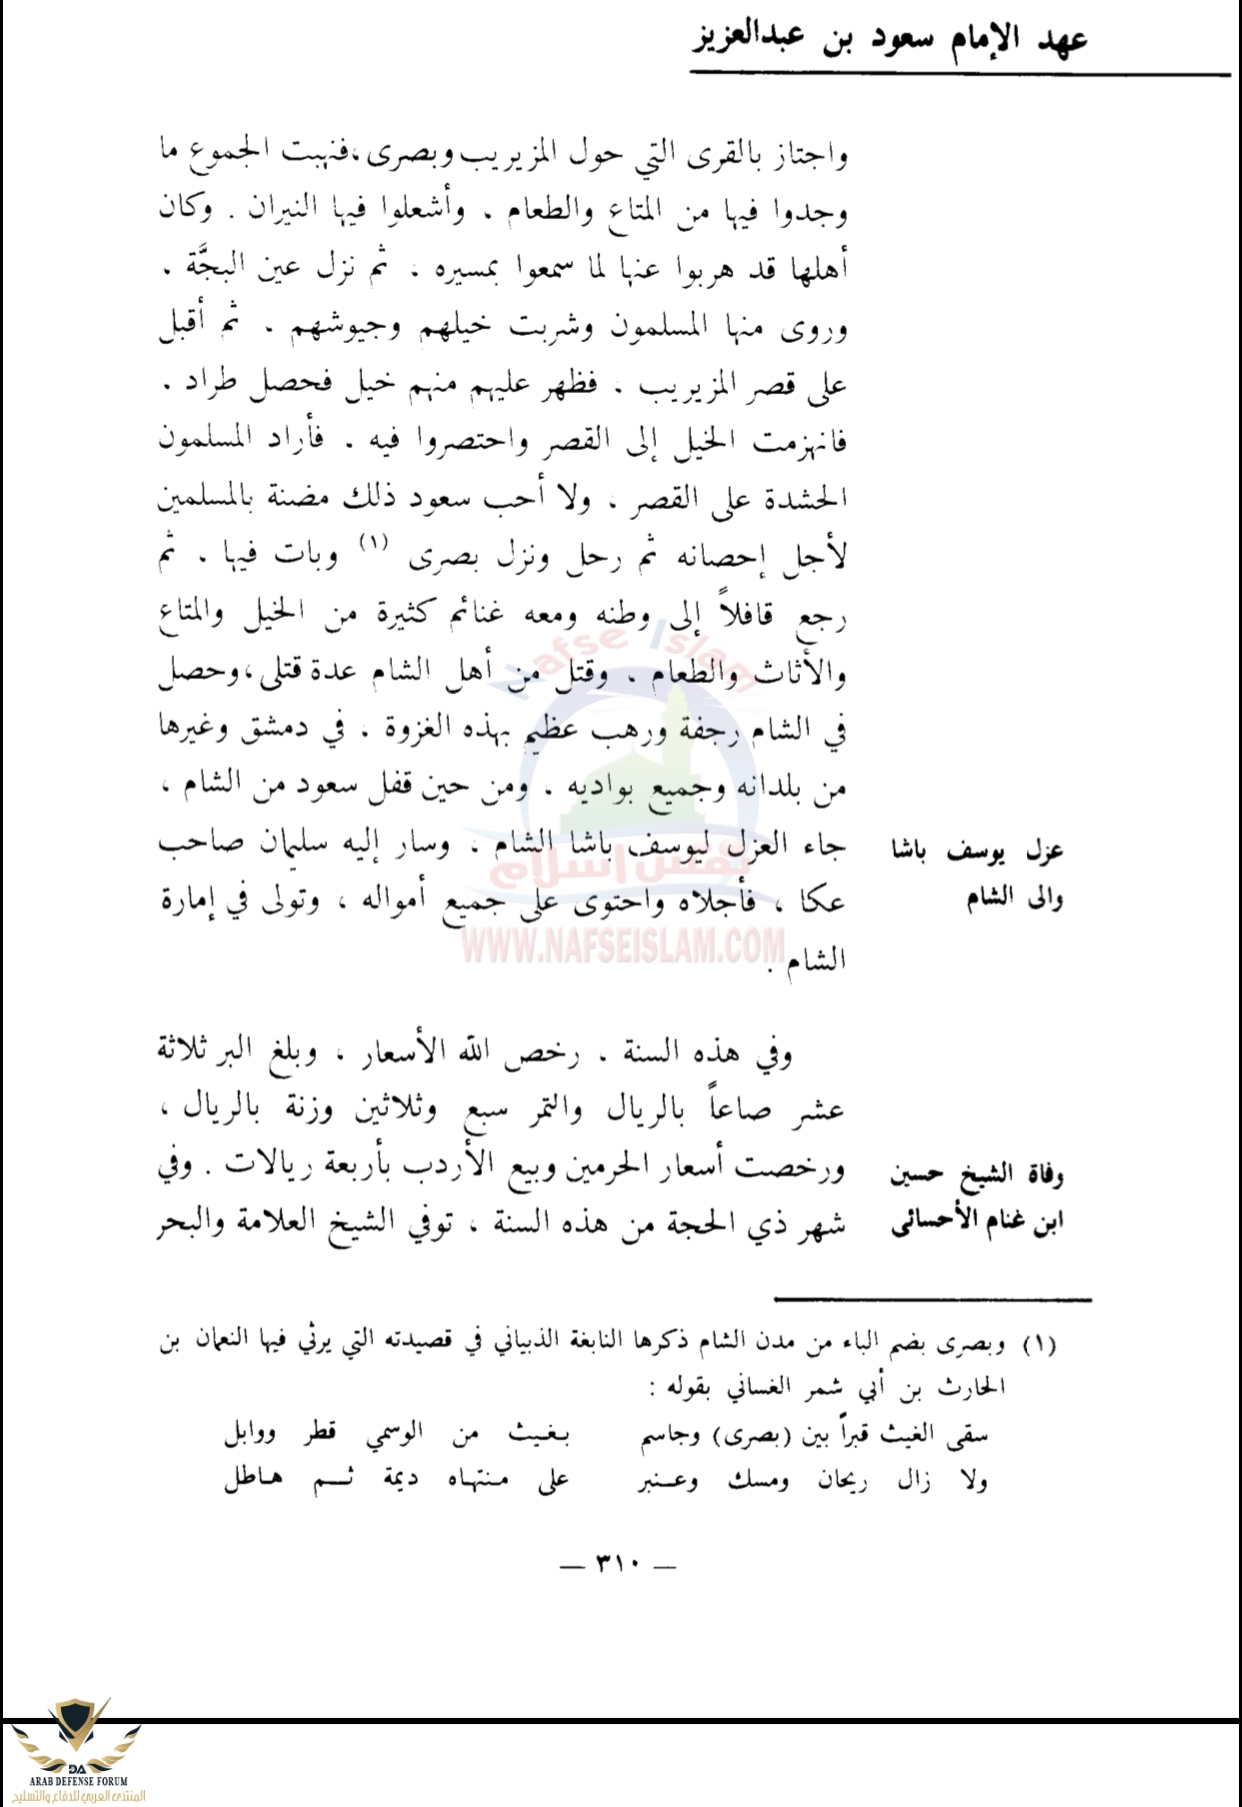 عهد الإمام سعود بن عبدالعزيز
واجتاز بالقرى التي حول المزيريب وبصرى ،فنهبت الجموع ما
وجدوا فيها من المتاع والطعام ، وأشعلوا فيها النيران . وكان
أهلها قد هربوا عنها لما سمعوا بمسيره ، ثم نزل عين البجَّة .
وروى منها المسلمون وشربت خيلهم وجيوشهم . ثم أقبل
على قصر المزيريب . فظهر عليهم منهم خيل فحصل طراد .
فانهزمت الخيل إلى القصر واحتصروا فيه . فأراد المسلمون
الحشدة على القصر ، ولا أحب سعود ذلك مضنة بالمسلمين
لأجل إحصانه ثم رحل ونزل بصرى (١) وبات فيها . ثم
رجع قافلاً إلى وطنه ومعه غنائم كثيرة من الخيل والمتاع
والأثاث والطعام . وقتل من أهل الشام عدة قتلى ،وحصل
في الشام رجفة ورهب عظيم بهذه الغزوة . في دمشق وغيرها
من بلدانه وجميع بواديه . ومن حين قفل سعود من الشام ،
جاء العزل ليوسف باشا الشام ، وسار إليه سليمان صاحب
عكا ، فأجلاه واحتوى على جميع أمواله ، وتولى في إمارة
الشام .
عزل يوسف باشا
والى الشام
وفي هذه السنة . رخص الله الأسعار ، وبلغ البر ثلاثة
عشر صاعاً بالريال والتمر سبع وثلاثين وزنة بالريال ،
ورخصت أسعار الحرمين وبيع الأردب بأربعة ريالات . وفي
شهر ذي الحجة من هذه السنة ، توفي الشيخ العلامة والبحر
وفاة الشيخ حسين
ابن غنام الأحسائى
(١) وبصرى بضم الباء من مدن الشام ذكرها النابغة الذبياني في قصيدته التي يرثي فيها النعمان بن
الحارث بن أبي شمر الغساني بقوله :
سقى الغيث قبراً بين (بصرى) وجاسم بغيث من الوسمي قطر ووابل
ولا زال ريحان ومسك وعنبر على منتهاه ديمة ثم هاطل
— ٣١٠ —
Nafse Islam
نفس اسلام
WWW.NAFSEISLAM.COM
DA
ARAB DEFENSE FORUM
المنتدى العربي للدفاع والتسليح